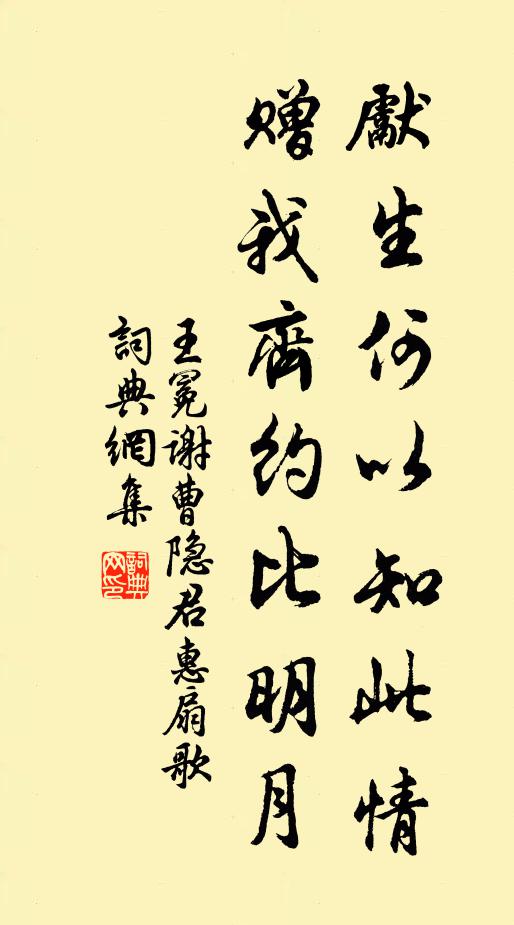 獻生何以知此情
贈我齊約比明月
王冕谢曹隐君惠扇歌
詞典網集
詞典
网印